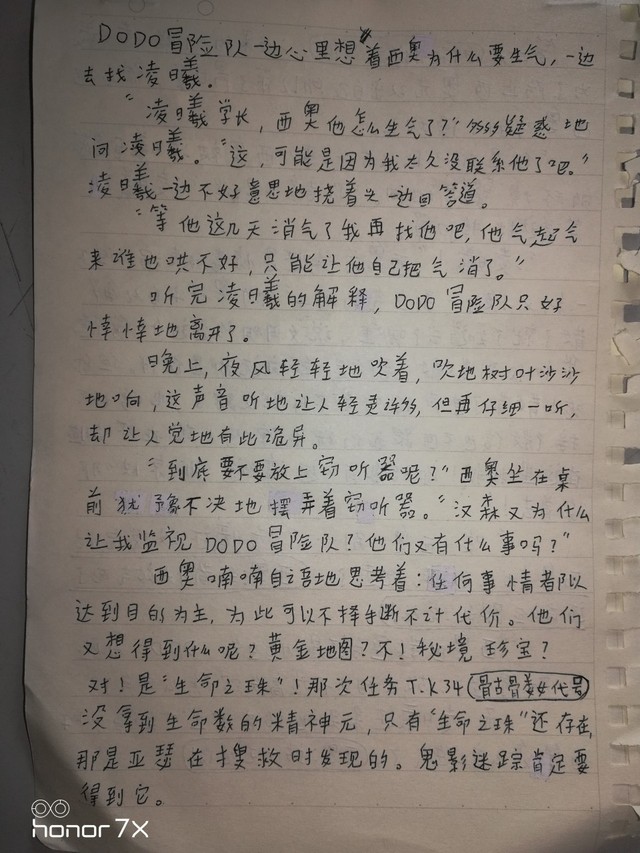 DODO冒险队一边心里想着西奥为什么要生气，一边
去找凌曦。
“凌曦学长，西奥他怎么生气了？”多多疑惑地
问凌曦。“这，可能是因为我太久没联系他了吧。”
凌曦一边不好意思地挠着头一边回答道。
“等他这几天消气了我再找他吧，他气起气
来谁也哄不好，只能让他自己把气消了。”
听完凌曦的解释，DODO冒险队只好
悻悻地离开了。
晚上，夜风轻轻地吹着，吹地树叶沙沙
地响，这声音听地让人轻灵许多，但再仔细一听，
却让人觉地有些诡异。
“到底要不要放上窃听器呢？”西奥坐在桌
前犹豫不决地摆弄着窃听器。“汉森又为什么
让我监视DODO冒险队？他们又有什么事吗？”
西奥喃喃自语地思考着：任何事情都以
达到目的为主，为此可以不择手断不计代价。他们
又想得到什么呢？黄金地图？不！秘境珍宝？
对！是“生命之珠”！那次任务T.K34（骷骨美女代号）
没拿到生命数的精神元，只有“生命之珠”还存在，
那是亚瑟在搜救时发现的。鬼影迷踪肯定要
得到它。
honor 7X